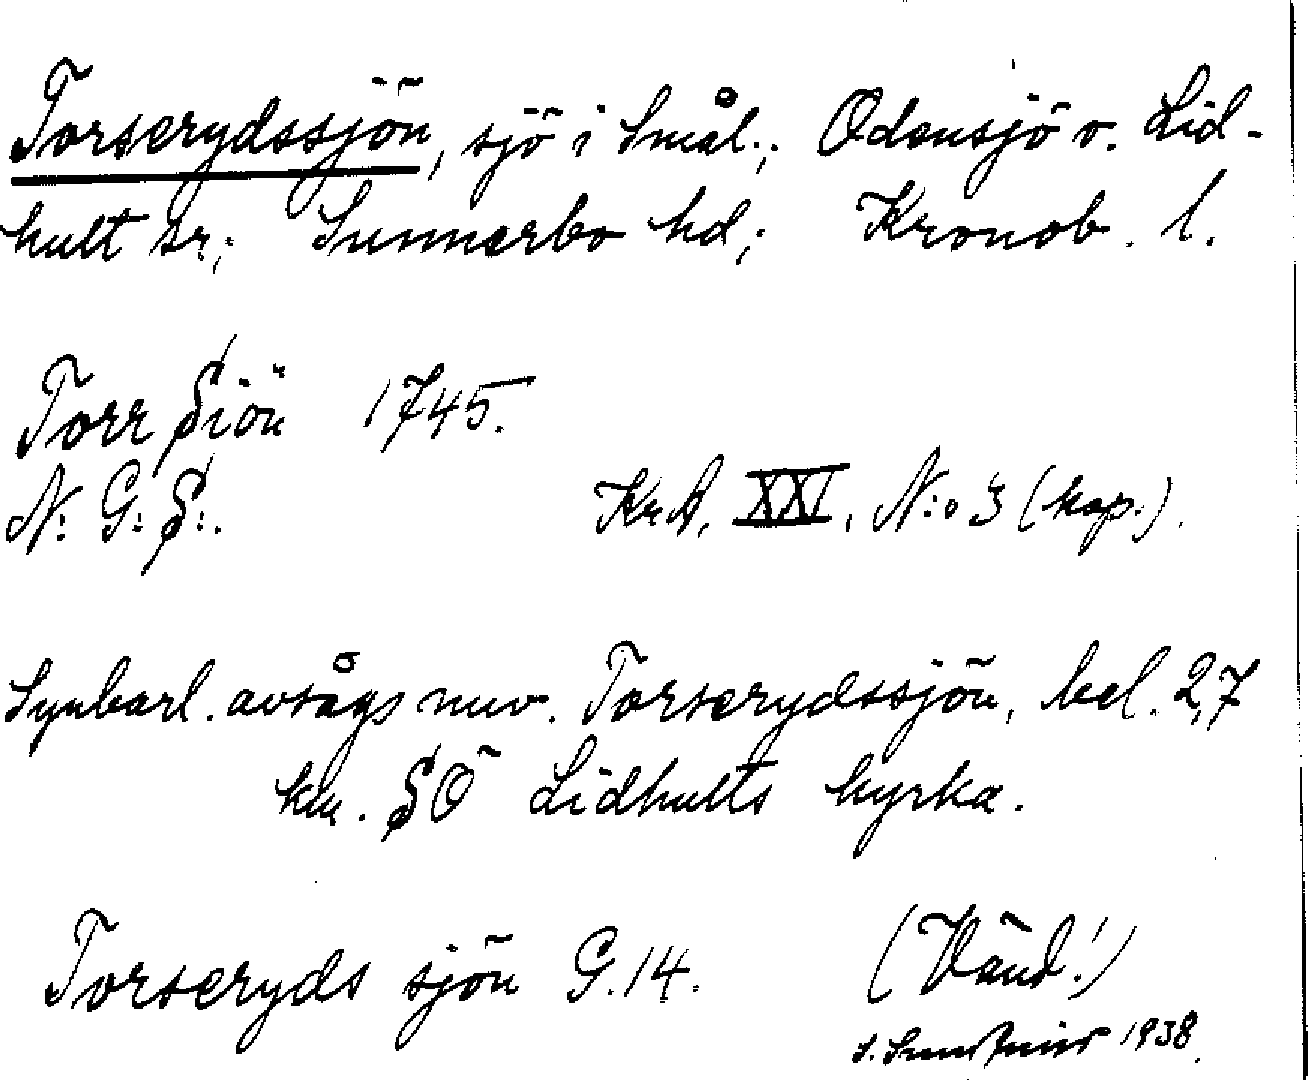 Torserydssjön, sjö i Smål.; Odensjö o. Lid-
hult sr; Sunnerbo hd; Kronob. l.
Torr Siön 1745.
N: G: S:.
Kr.A. XXI, N:o 3 (kop.).
Synbarl. avsågs nuv. Torserydssjön, bel. 2,7
km. SÖ Lidhults kyrka.
Torseryds sjön G.14.
(Vänd!)
1938.